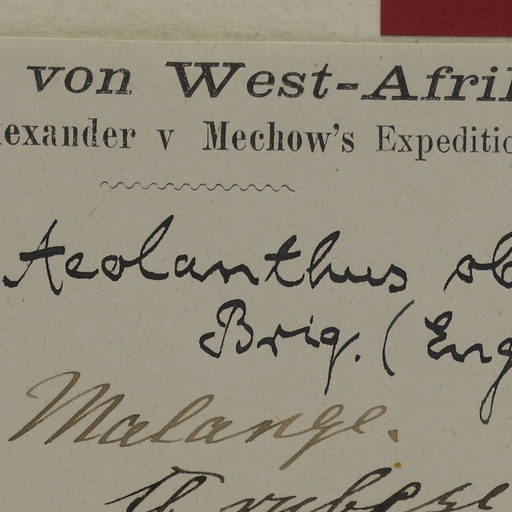 von West-Afri
lexander v Mechow's Expeditio
Aeolanthus ob
Brig. (Eng
Malange.